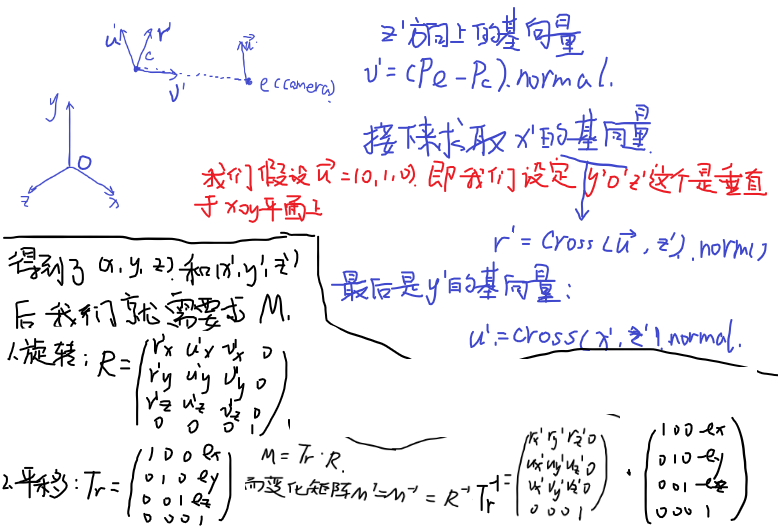 u' r'
c
v'
u⃗
e(camera)
y
O
z x
z'方向上的基向量
v' = (Pe - Pc).normal.
接下来求取x'的基向量.
我们假设u⃗=(0,1,0).即我们设定 y'o'z'这个是垂直
于xoy平面上
r' = cross(u⃗, z').norm()
最后是y'的基向量:
u' = cross(x', z').normal.
得到了(x, y, z)和(x', y', z')
后我们就需要求M.
1.旋转: R =
r'x u'x v'x 0
r'y u'y v'y 0
r'z u'z v'z 0
0 0 0 1
2.平移: Tr =
1 0 0 ex
0 1 0 ey
0 0 1 ez
0 0 0 1
M = Tr · R.
而变化矩阵M' = M⁻¹ = R⁻¹ Tr⁻¹ =
rx' ry' rz' 0
ux' uy' uz' 0
vx' vy' vz' 0
0 0 0 1
·
1 0 0 -ex
0 1 0 -ey
0 0 1 -ez
0 0 0 1